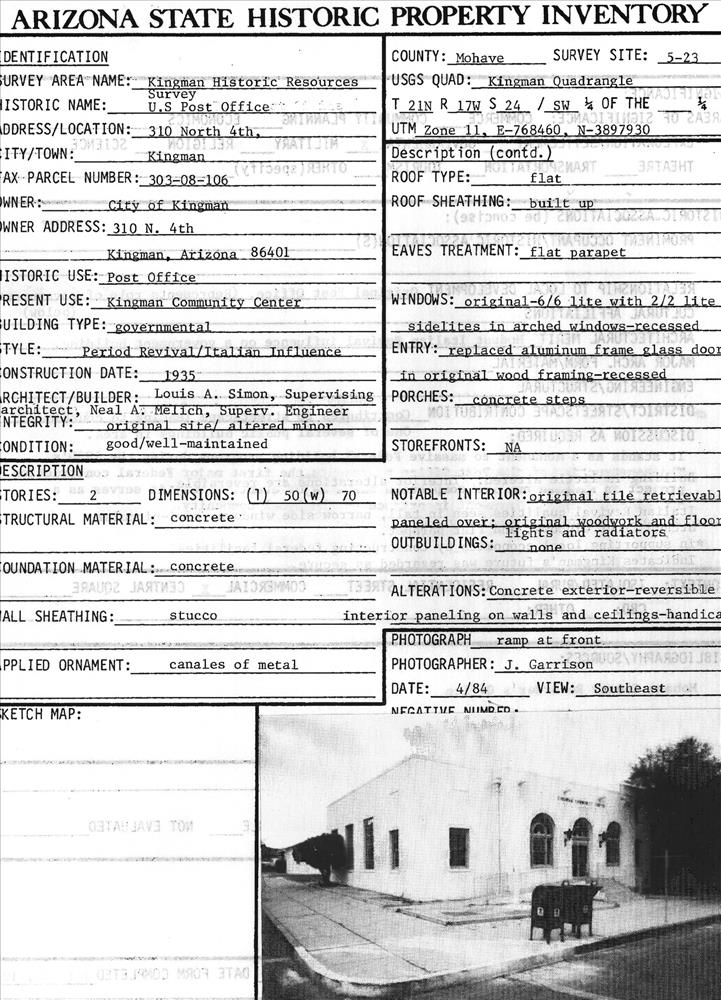 ARIZONA STATE HISTORIC PROPERTY INVENTORY
IDENTIFICATION
SURVEY AREA NAME: Kingman Historic Resources Survey
HISTORIC NAME: U.S Post Office
ADDRESS/LOCATION: 310 North 4th,
CITY/TOWN: Kingman
TAX PARCEL NUMBER: 303-08-106
OWNER: City of Kingman
OWNER ADDRESS: 310 N. 4th
Kingman, Arizona 86401
HISTORIC USE: Post Office
PRESENT USE: Kingman Community Center
BUILDING TYPE: governmental
STYLE: Period Revival/Italian Influence
CONSTRUCTION DATE: 1935
ARCHITECT/BUILDER: Louis A. Simon, Supervising
architect, Neal A. Melich, Superv. Engineer
INTEGRITY: original site/ altered minor
CONDITION: good/well-maintained
COUNTY: Mohave SURVEY SITE: 5-23
USGS QUAD: Kingman Quadrangle
T 21N R 17W S 24 / SW ¼ OF THE ¼
UTM Zone 11, E-768460, N-3897930
Description (contd.)
ROOF TYPE: flat
ROOF SHEATHING: built up
EAVES TREATMENT: flat parapet
WINDOWS: original-6/6 lite with 2/2 lite
sidelites in arched windows-recessed
ENTRY: replaced aluminum frame glass door
in original wood framing-recessed
PORCHES: concrete steps
STOREFRONTS: NA
NOTABLE INTERIOR: original tile retrievabl
paneled over; original woodwork and floor
lights and radiators
OUTBUILDINGS: none
ALTERATIONS: Concrete exterior-reversible
interior paneling on walls and ceilings-handica
DESCRIPTION
STORIES: 2 DIMENSIONS: (l) 50 (w) 70
STRUCTURAL MATERIAL: concrete
FOUNDATION MATERIAL: concrete
WALL SHEATHING: stucco
APPLIED ORNAMENT: canales of metal
PHOTOGRAPH ramp at front
PHOTOGRAPHER: J. Garrison
DATE: 4/84 VIEW: Southeast
NEGATIVE NUMBER:
SKETCH MAP: